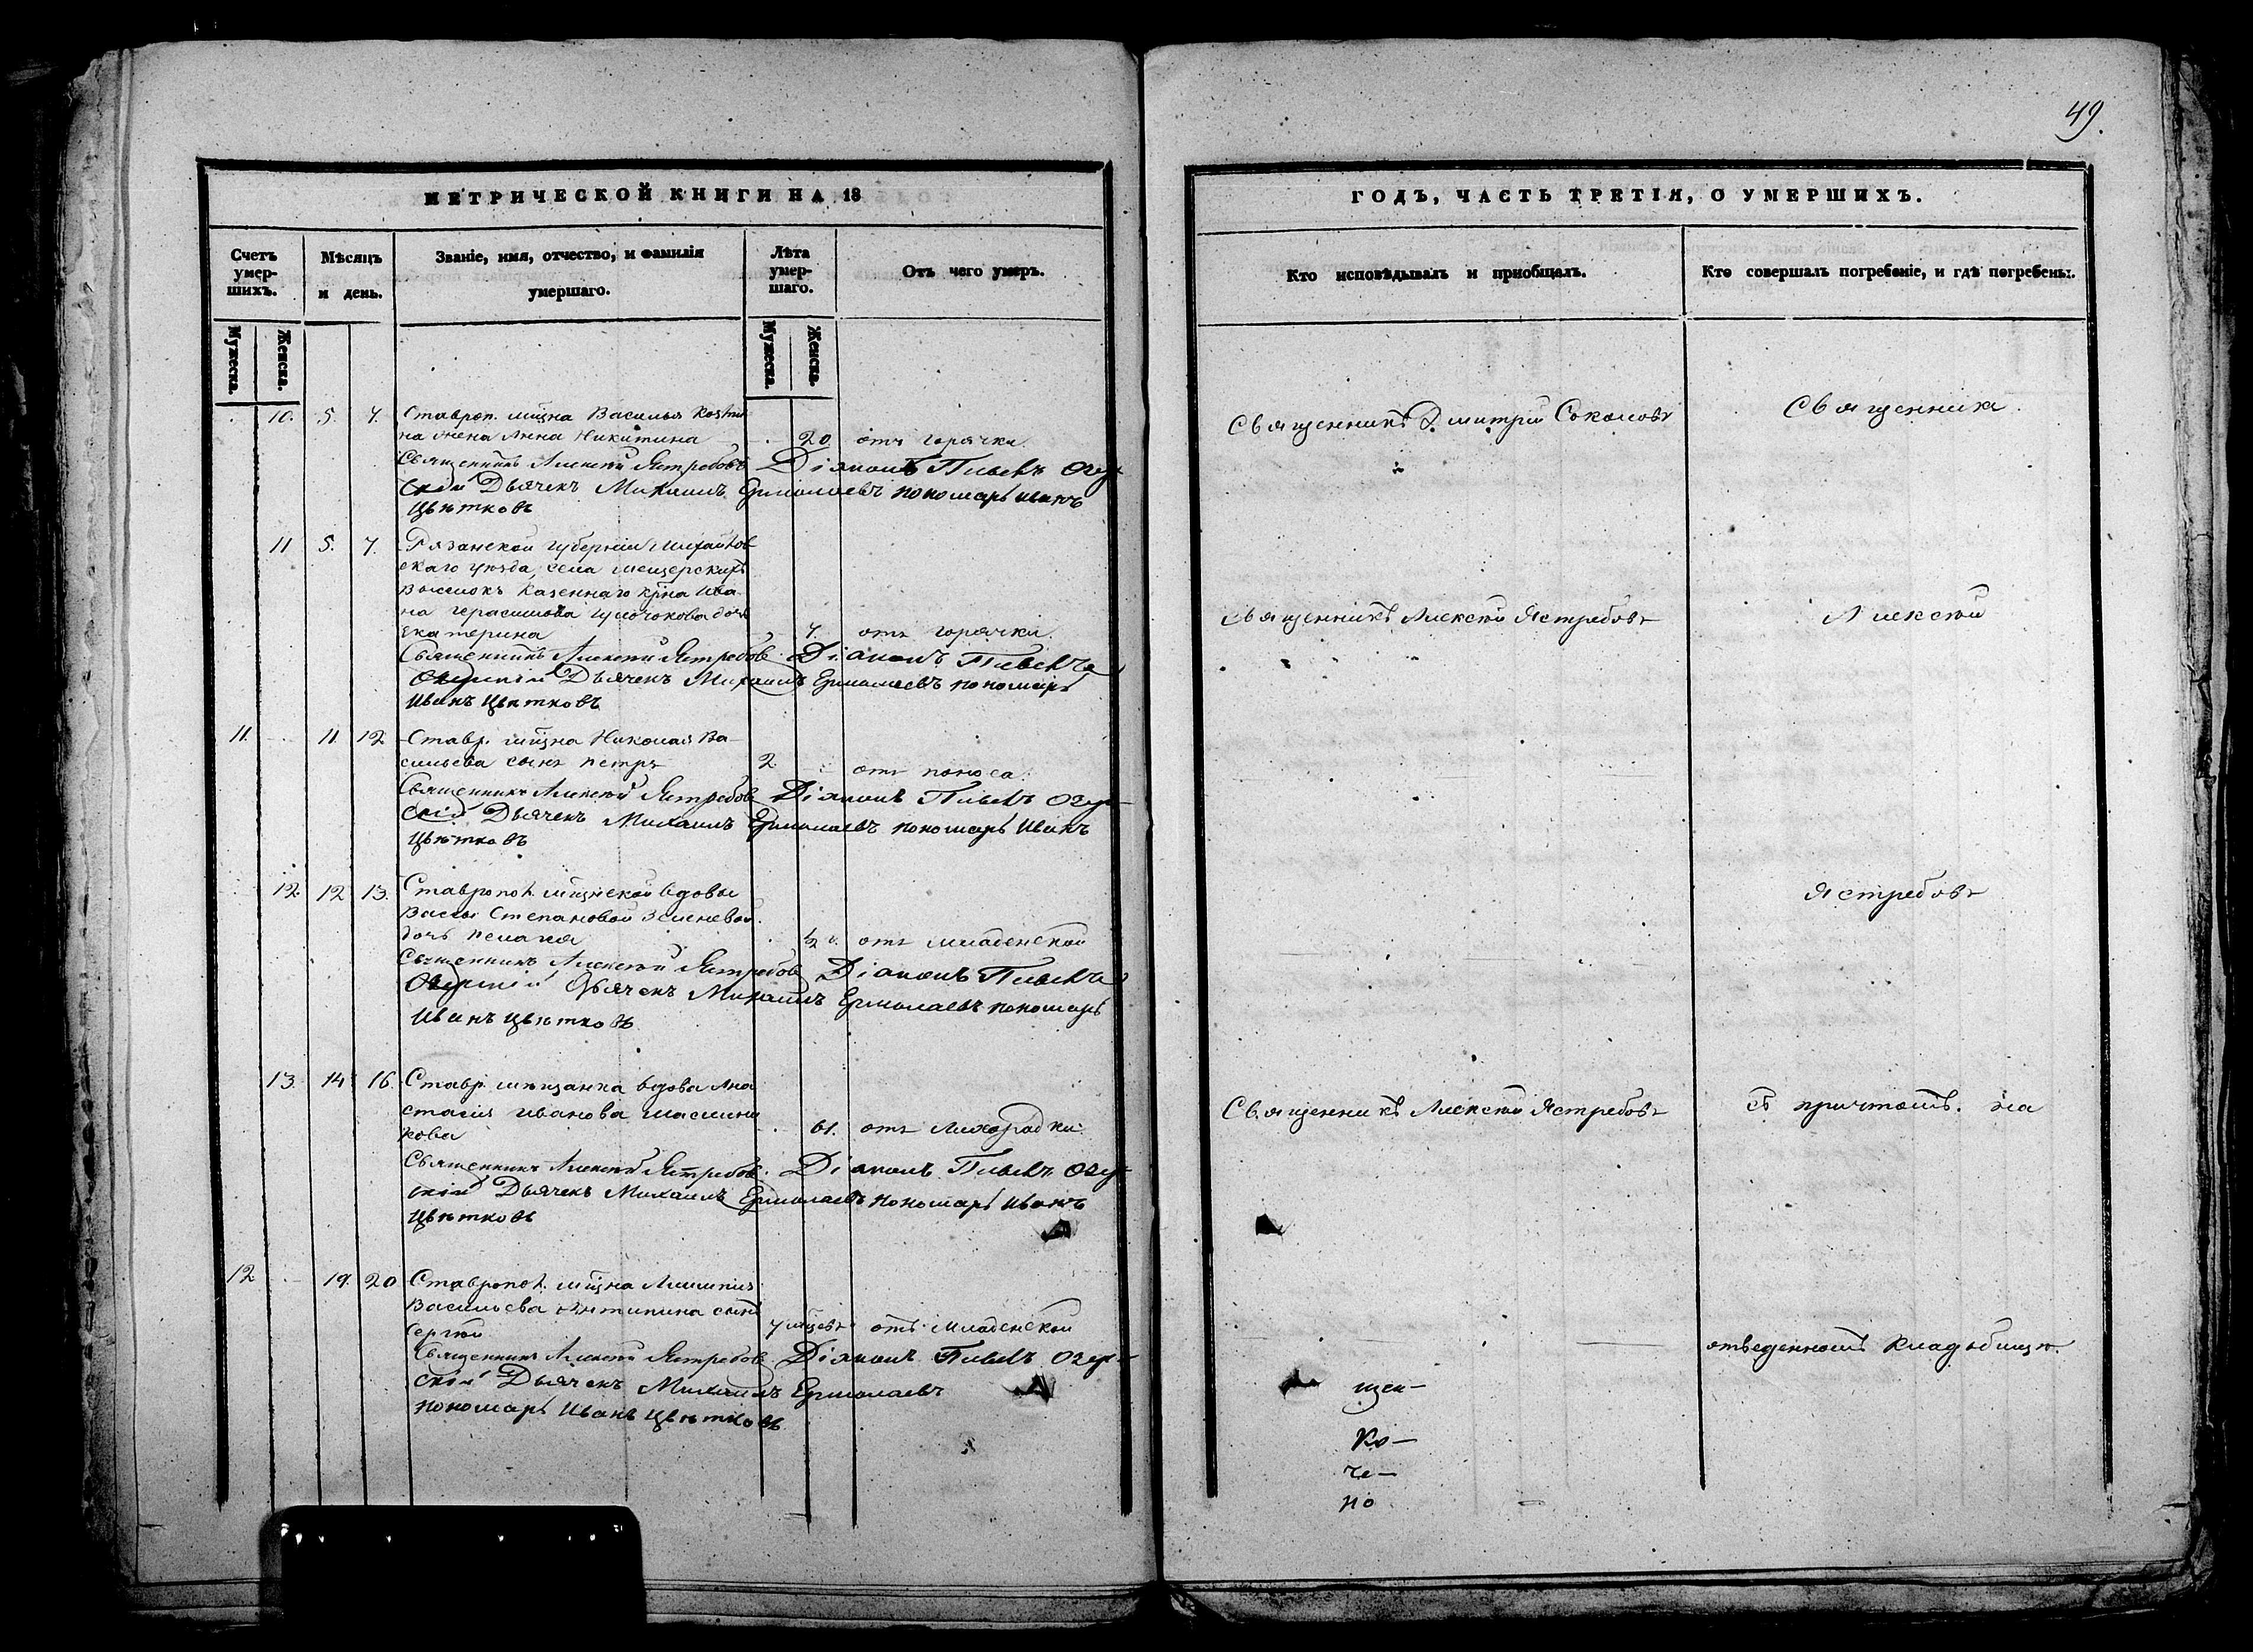 49.
МЕТРИЧЕСКОЙ КНИГИ НА 18
Счетъ умер-шихъ.
Мѣсяцъ и день.
Званіе, имя, отчество, и фамилія умершаго.
Лѣта умер-шаго.
Отъ чего умеръ.
Мужеска.
Женска.
Мужеска.
Женска.
10. 5. 7. Ставроп. мщна Василья
на жена Анна Никитина 20 отъ горячки
Священникъ Алексѣй Ястребовъ Діаконъ Павелъ Озер-
скій Дьячекъ Михаилъ Ермолаевъ пономарь Иванъ
Цвѣтковъ
11 5. 7. Рязанской губерніи Михайлов
скаго уѣзда, села Мещерскихъ
Выселокъ казеннаго крна Ива
на Герасимова дочь
Екатерина 7. отъ горячки.
Священникъ Алексѣй Ястребовъ Діаконъ Павелъ
Озерскій Дьячекъ Михаилъ Ермолаевъ пономарь
Иванъ Цвѣтковъ
11. 11. 12 Ставр. мщна Николая Ва-
сильева сынъ Петръ 2 отъ поноса.
Священникъ Алексѣй Ястребовъ Діаконъ Павелъ Озер-
скій Дьячекъ Михаилъ Ермолаевъ пономарь Иванъ
Цвѣтковъ
12. 12 13. Ставропол. мщнской вдовы
Васы Степановой Зеленевой
дочь Пелагея ½ г. отъ младенской
Священникъ Алексѣй Ястребовъ Діаконъ Павелъ
Озерскій Дьячекъ Михаилъ Ермолаевъ пономарь
Иванъ Цвѣтковъ
13. 14 16. Ставр. мѣщанка вдова Ана
стасія Иванова Маслени
кова 61. отъ лихорадки.
Священникъ Алексѣй Ястребовъ. Діаконъ Павелъ Озер-
скій Дьячекъ Михаилъ Ермолаевъ пономарь Иванъ
Цвѣтковъ
12 19. 20 Ставропол. мщна
Васильева Антипина сынъ
Сергѣй 7 мцевъ отъ младенской
Священникъ Алексѣй Ястребовъ Діаконъ Павелъ Озер-
скій Дьячекъ Михаилъ Ермолаевъ
пономарь Иванъ Цвѣтковъ
ГОДЪ, ЧАСТЬ ТРЕТІЯ, О УМЕРШИХЪ.
Кто исповѣдывалъ и пріобщалъ.
Кто совершалъ погребеніе, и гдѣ погребены.
Священникъ Дмитрій Соколовъ Священникъ
Священникъ Алексѣй Ястребовъ Алексѣй
Ястребовъ
Священникъ Алексѣй Ястребовъ съ причтомъ. на
отведенномъ кладбищѣ.
щен-
Ко-
че-
но